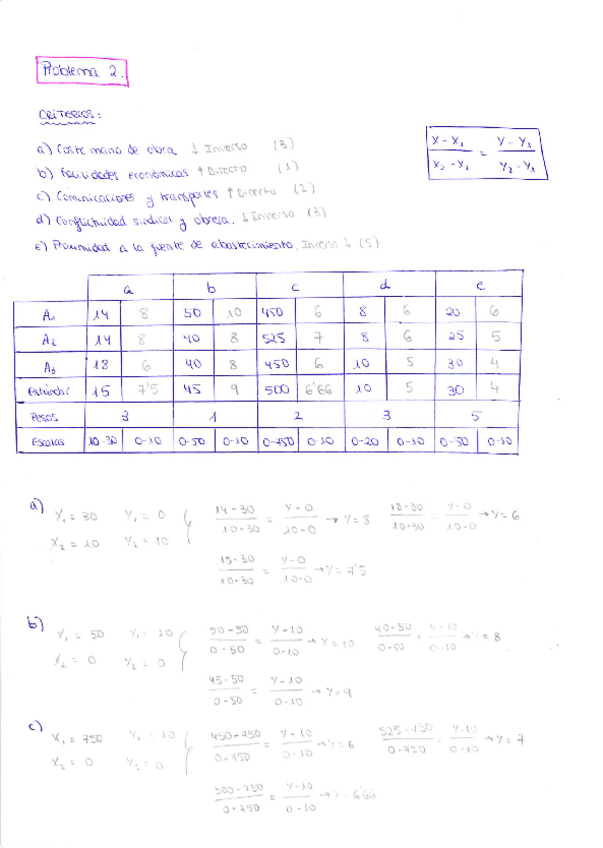 Problema 2.
CRITERIOS:
a) Coste mano de obra ↓ Inverso (3)
b) Facilidades económicas ↑ Directo (1)
c) Comunicaciones y transportes ↑ Directo (2)
d) Conflictividad sindical y obrera. ↓ Inverso (3)
e) Proximidad a la fuente de abastecimiento. Inverso ↓ (5)
X - X₁ / X₂ - X₁ = Y - Y₁ / Y₂ - Y₁
a b c d e
A₁ 14 8 50 10 450 6 8 6 20 6
A₂ 14 8 40 8 525 7 8 6 25 5
A₃ 18 6 40 8 450 6 10 5 30 4
Estándar 15 7'5 45 9 500 6'66 10 5 30 4
Pesos 3 1 2 3 5
Escalas 10-30 0-10 0-50 0-10 0-750 0-10 0-20 0-10 0-50 0-10
a) X₁ = 30 Y₁ = 0 { 14-30 / 10-30 = Y-0 / 10-0 → Y = 8 18-30 / 10-30 = Y-0 / 10-0 → Y = 6
X₂ = 10 Y₂ = 10
15-30 / 10-30 = Y-0 / 10-0 → Y = 7'5
b) X₁ = 50 Y₁ = 10 { 50-50 / 0-50 = Y-10 / 0-10 → Y = 10 40-50 / 0-50 = Y-10 / 0-10 → Y = 8
X₂ = 0 Y₂ = 0
45-50 / 0-50 = Y-10 / 0-10 → Y = 9
c) X₁ = 750 Y₁ = 10 { 450-750 / 0-750 = Y-10 / 0-10 → Y = 6 525-750 / 0-750 = Y-10 / 0-10 → Y = 7
X₂ = 0 Y₂ = 0
500-750 / 0-750 = Y-10 / 0-10 → Y = 6'66